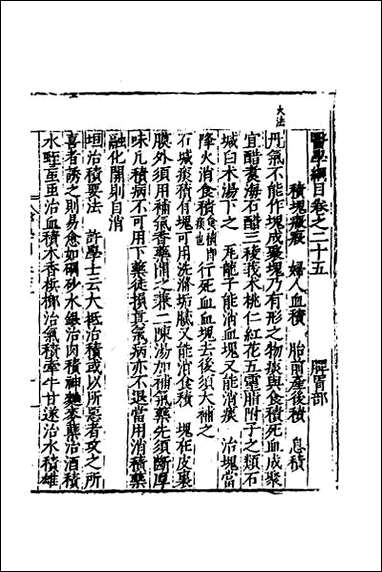 醫學綱目卷之二十五 脾胃部
積塊癥瘕 婦人血積 胎前產後積 息積
大法
丹氣不能作塊成聚塊乃有形之物痰與食積死血成聚
宜醋煮海石醋三稜莪朮桃仁紅花五靈脂附子之類石
堿白朮湯下之 瓦龍子能消血塊又能消痰 治塊當
降火消食積食積即痰也行死血血塊去後須大補之
石堿痰積有塊可用洗滌垢膩又能消食積 塊在皮裏
膜外須用補氣香藥開之兼二陳湯加補氣藥先須斷厚
味凡積病不可用下藥徒損真氣病亦不退當用消積藥
融化開則自消
垣治積要法 許學士云大抵治積或以所惡者攻之所
喜者誘之則易愈如硇砂水銀治肉積神麯麥蘖治酒積
水蛭虻蟲治血積木香檳榔治氣積牽牛甘遂治水積雄